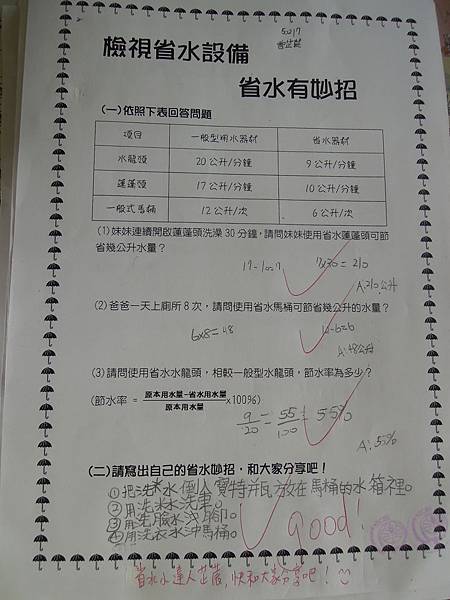 50217
檢視省水設備
省水有妙招
(一)依照下表回答問題
項目 一般型用水器材 省水器材
水龍頭 20公升/分鐘 9公升/分鐘
蓮蓬頭 17公升/分鐘 10公升/分鐘
一般式馬桶 12公升/次 6公升/次
(1)妹妹連續開啟蓮蓬頭洗澡30分鐘,請問妹妹使用省水蓮蓬頭可節
省幾公升水量?
17-10=7 7x30=210
A:210公升
(2)爸爸一天上廁所8次,請問使用省水馬桶可節省幾公升的水量?
6x8=48 12-6=6
A:48公升
(3)請問使用省水水龍頭,相較一般型水龍頭,節水率為多少?
(節水率= 原本用水量-省水用水量/原本用水量 x100%)
9/20=55/100=55%
A:55%
(二)請寫出自己的省水妙招,和大家分享吧!
①把洗米水倒入寶特瓶放在馬桶的水箱裡。
②用洗米水洗車。
③用洗臉水洗
④用洗衣水沖馬桶。
good!
省水小達人芷 ,快和大家分享吧!